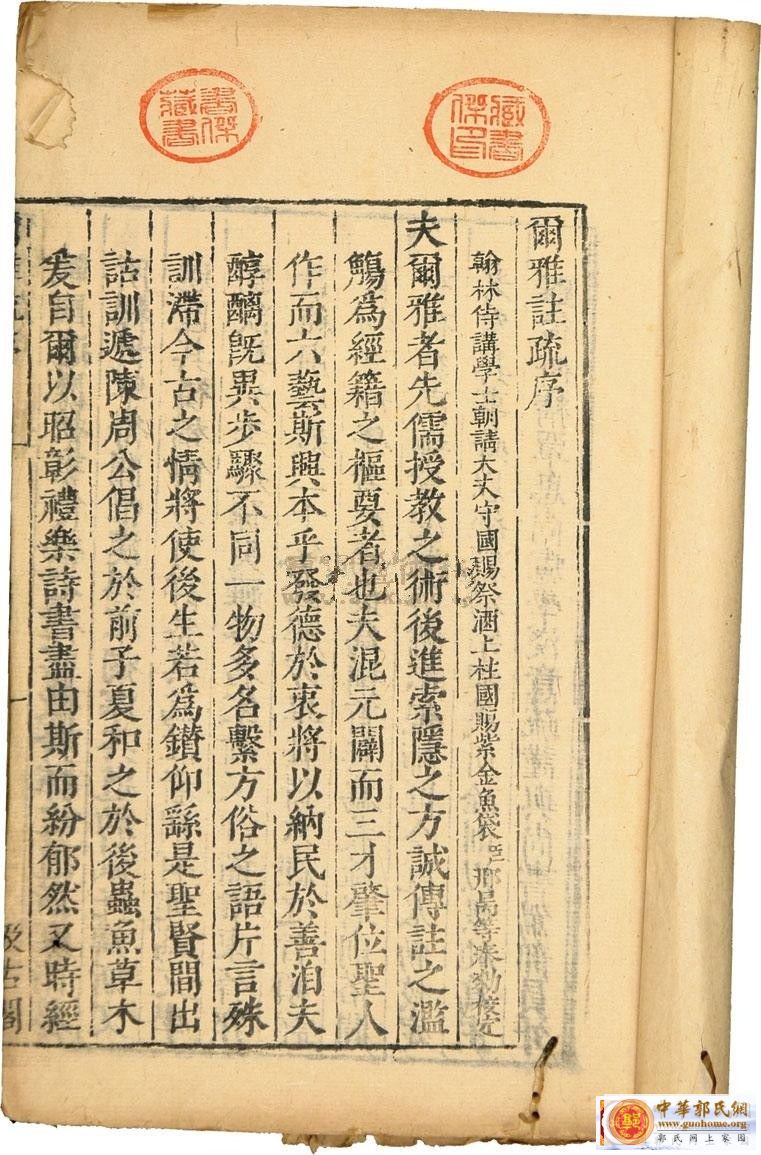 爾雅註疏序
翰林侍講學士朝請大夫守國子祭酒上柱國賜紫金魚袋臣邢昺等奉勑校定
夫爾雅者先儒授教之術後進索隱之方誠傳註之濫
觴爲經籍之樞要者也夫混元闢而三才肇位聖人
作而六藝斯興本乎發德於衷將以納民於善洎夫
醇醨旣異步驟不同一物多名繫方俗之語片言殊
訓滯今古之情將使後生若爲鑽仰繇是聖賢間出
詁訓遞陳周公倡之於前子夏和之於後蟲魚草木
爰自爾以昭彰禮樂詩書盡由斯而紛郁然又時經
汲古閣
中華郭氏網
www.guohome.org
郭氏網上家園